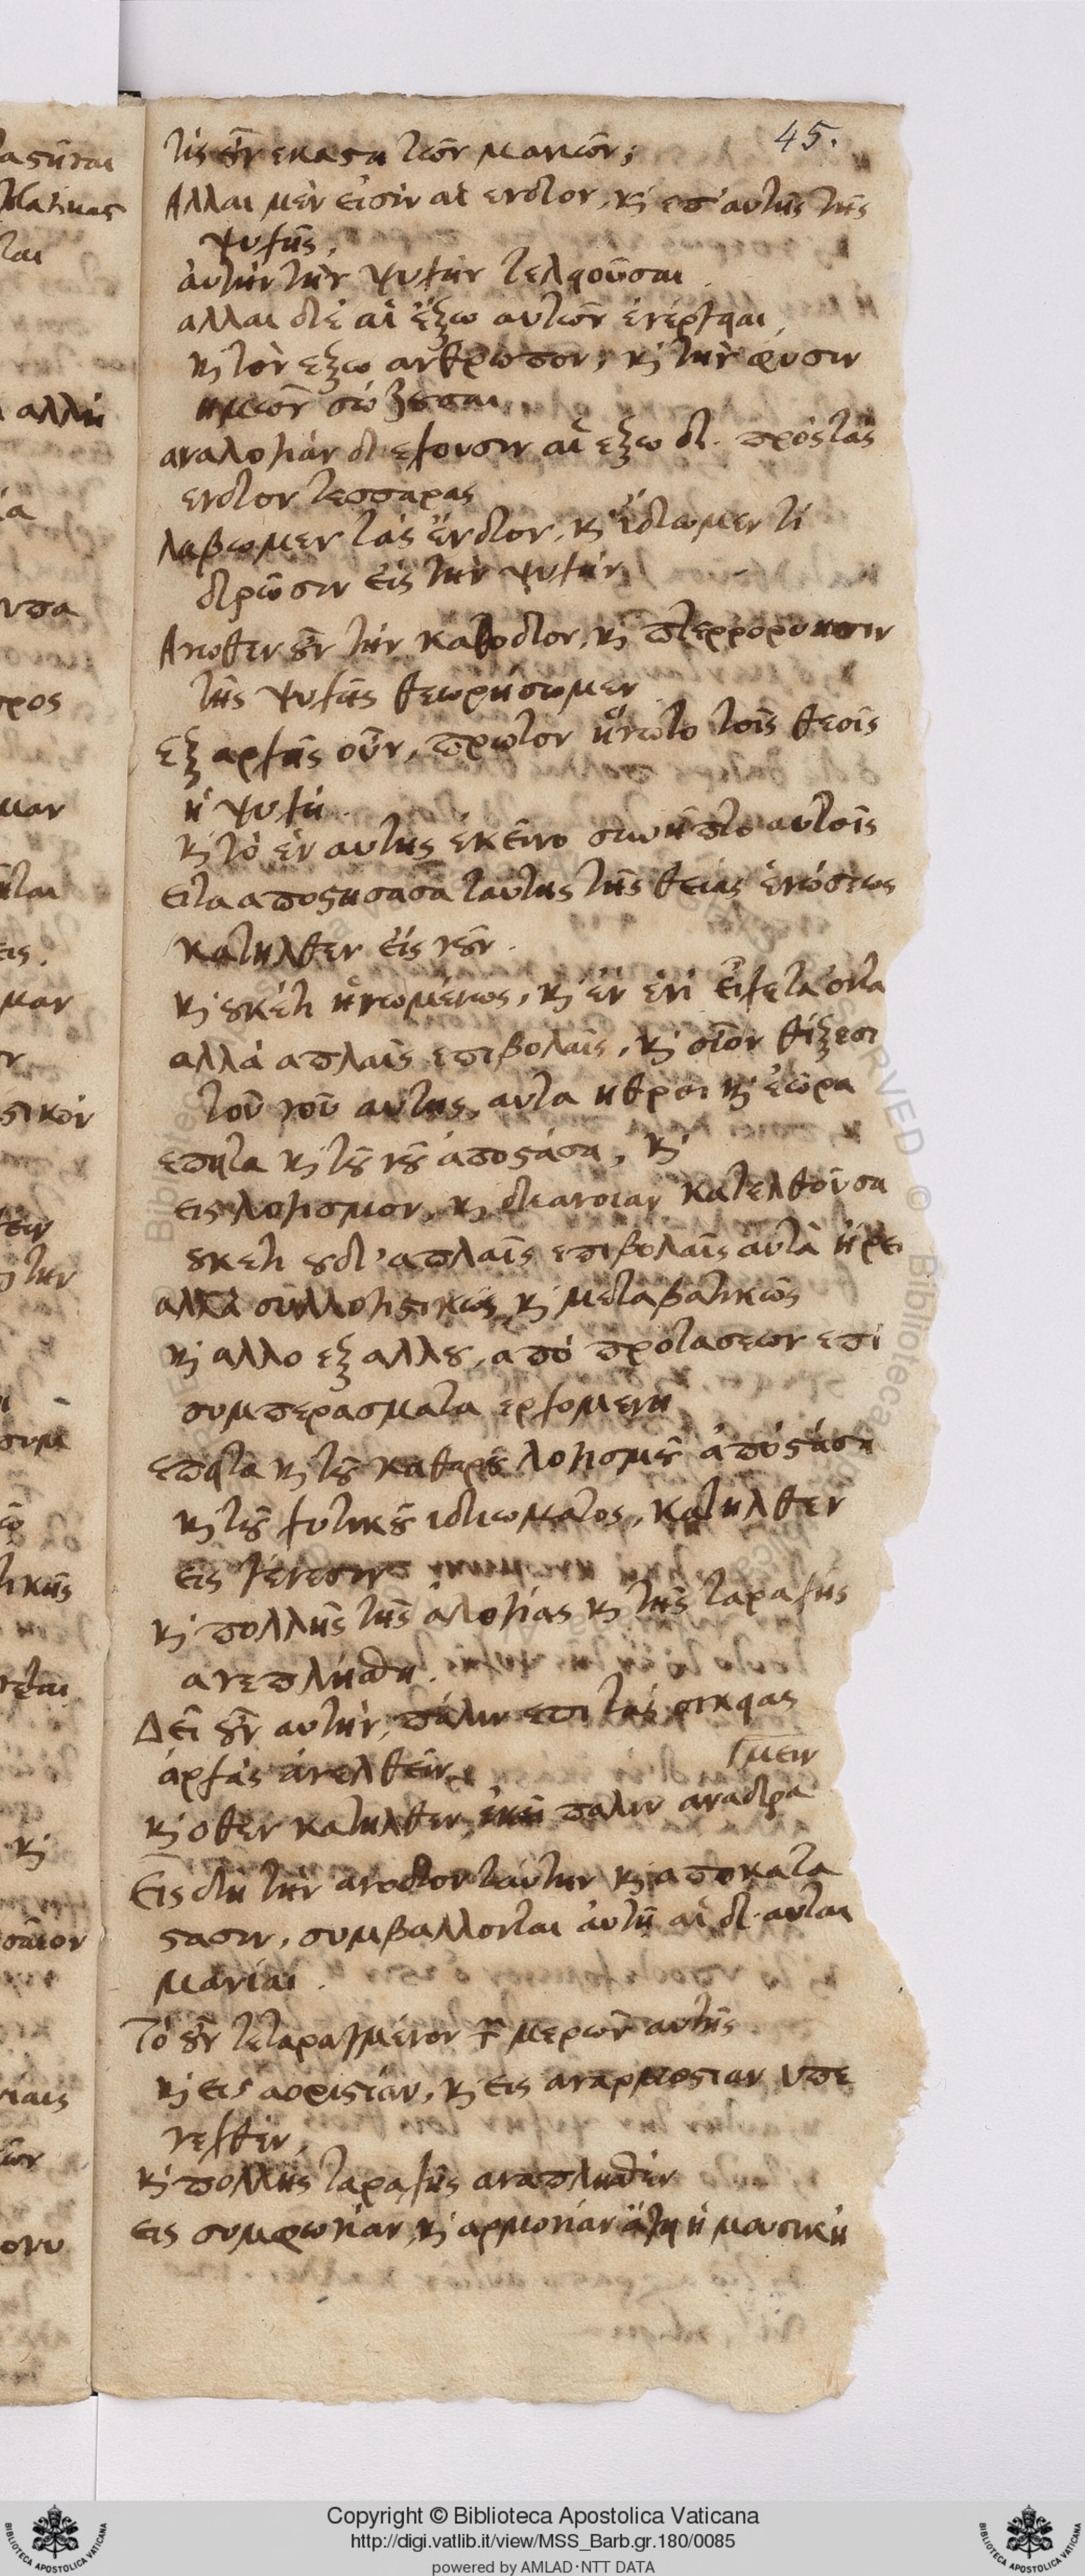 45.
τίς οὖν εκαστη τῶν μανιῶν;
Αλλαι μὲν εἰσὶν αἱ ενδον, κ̀ επ' αυτῆς τῆς
ψυχῆς,
ἀυτὴν τὴν ψυχὴν τελειοῦσαι.
αλλαι δὲ αἱ ἔξω αυτῶν ἐνέργειαι,
κ̀ τὸν εξω ανθρωπον, κ̀ τὴν φυσιν
ημῶν σώζουσαι
αναλογίαν δ' εχουσιν αἱ εξω δ. πρὸς τὰς
ενδον τεσσαρας
λαβωμεν τὰς ἔνδον, κ̀ ἴδωμεν τί
δρῶσιν εἰς τὴν ψυχὴν
Ανωθεν οὖν τὴν καθοδον, κ̀ πτερρορυησιν
τῆς ψυχῆς θεωρήσωμεν
εξ αρχῆς οὖν, πρωτον ἥνωτο τοῖς θεοῖς
ἡ ψυχή.
κ̀ τὸ ἓν αυτης ἐκεῖνο συνῆπτο αυτοῖς
ειτα αποστησασα ταυτης τῆς θείας ἑνώσεως
κατηλθεν εἰς νοῦν.
κ̀ ουκέτι ἡνωμένως, κ̀ ἐν ἑνὶ εἰχε τα ὄντα
αλλὰ απλαῖς επιβολαῖς, κ̀ οἷον θίξεσι
τοῦ νοῦ αυτης, αυτα ηθρει κ̀ ἑώρα
επειτα κ̀ τοῦ νοῦ ἀποστάσα, κ̀
εις λογισμον, κ̀ διανοιαν κατελθοῦσα
ουκετι ουδ' απλαῖς επιβολαῖς αυτὰ ἥρει
αλλὰ συλλογιστικῶς κ̀ μεταβατικῶς
κ̀ αλλο εξ αλλου, απὸ προτασεων επὶ
συμπερασματα ερχομενη
επειτα κ̀ τοῦ καθαροῦ λογισμοῦ ἀποστάσα
κ̀ τοῦ ψυχικοῦ ιδιωματος, κατηλθεν
εις γένεσιν
κ̀ πολλῆς τῆς ἀλογίας κ̀ τῆς ταραχῆς
ανεπλήσθη.
Δεῖ οὖν αυτὴν, πάλιν επι τὰς οικειας
ἀρχὰς ἀνελθεῖν,
μεῖν
κ̀ οθεν κατηλθεν, ἐκεῖ παλιν αναδρα
Εις δὴ τὴν ανοδον ταύτην κ̀ αποκατα
στασιν, συμβαλλονται ἀυτῇ αἱ δ. αυται
μανίαι.
Τὸ οὖν τεταραγμένον τῶν μερῶν αυτῆς
κ̀ εις αοριστίαν, κ̀ εις αναρμοστίαν υπε
νεχθεν,
κ̀ πολλῆς ταραχῆς αναπλησθὲν
εις συμφωνίαν κ̀ αρμονίαν ἄγει ἡ μουσικὴ
Copyright © Biblioteca Apostolica Vaticana
http://digi.vatlib.it/view/MSS_Barb.gr.180/0085
powered by AMLAD·NTT DATA